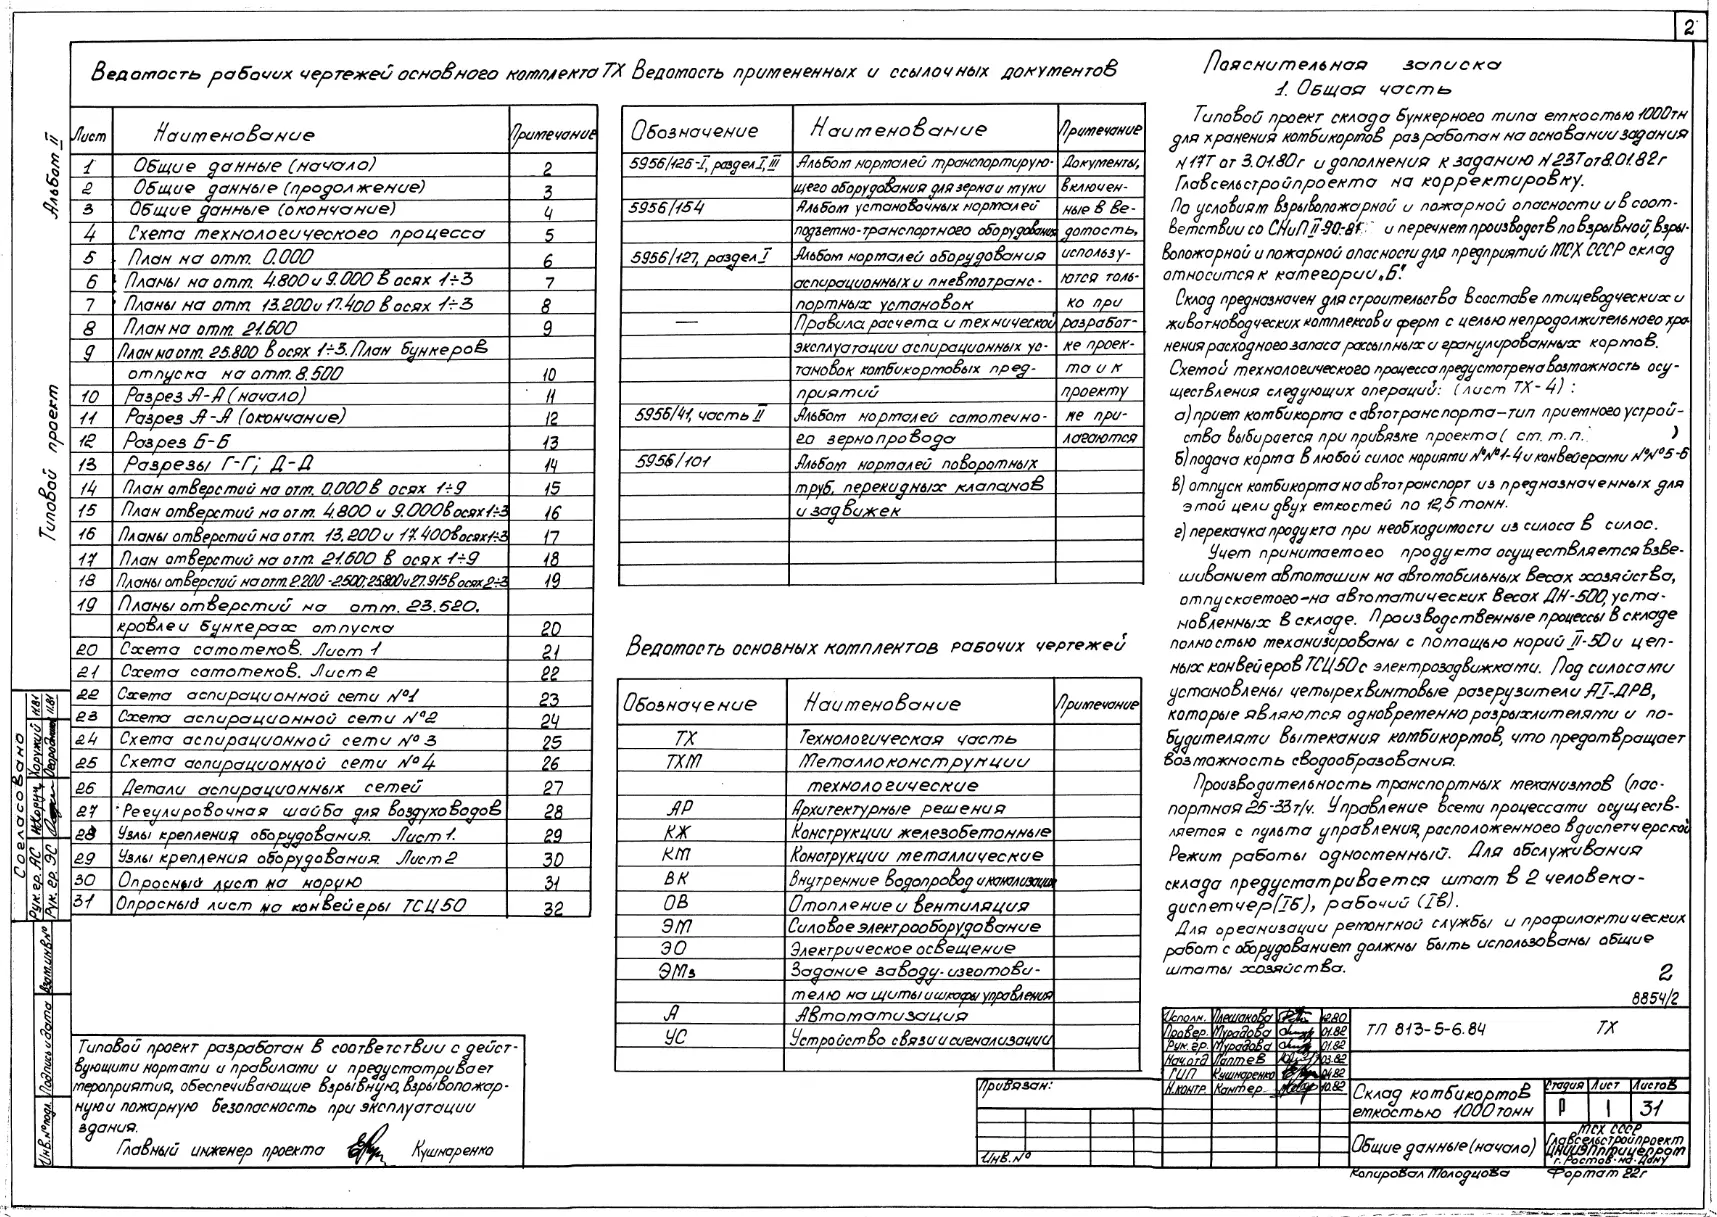 2
Ведомость рабочих чертежей основного комплекта ТХ
Лист Наименование Примечание
1 Общие данные (начало) 2
2 Общие данные (продолжение) 3
3 Общие данные (окончание) 4
4 Схема технологического процесса 5
5 План на отм. 0.000 6
6 Планы на отм. 4.800 и 9.000 в осях 1÷3 7
7 Планы на отм. 13.200 и 17.400 в осях 1÷3 8
8 План на отм. 21.600 9
9 План на отм. 25.800 в осях 1÷3. План бункеров
отпуска на отм. 8.500 10
10 Разрез А-А (начало) 11
11 Разрез А-А (окончание) 12
12 Разрез Б-Б 13
13 Разрезы Г-Г; Д-Д 14
14 План отверстий на отм. 0.000 в осях 1÷9 15
15 План отверстий на отм. 4.800 и 9.000 в осях 1÷3 16
16 Планы отверстий на отм. 13.200 и 17.400 в осях 1÷3 17
17 План отверстий на отм. 21.600 в осях 1÷9 18
18 Планы отверстий на отм. 2.200-2.500; 25.800 и 27.915 в осях 2÷3 19
19 Планы отверстий на отм. 23.520,
кровле и бункерах отпуска 20
20 Схема самотеков. Лист 1 21
21 Схема самотеков. Лист 2 22
22 Схема аспирационной сети №1 23
23 Схема аспирационной сети №2 24
24 Схема аспирационной сети №3 25
25 Схема аспирационной сети №4 26
26 Детали аспирационных сетей 27
27 Регулировочная шайба для воздуховодов 28
28 Узлы крепления оборудования. Лист 1. 29
29 Узлы крепления оборудования Лист 2 30
30 Опросный лист на норию 31
31 Опросный лист на конвейеры ТСЦ50 32
Типовой проект разработан в соответствии с дейст-
вующими нормами и правилами и предусматривает
мероприятия, обеспечивающие взрывную, взрывопожар-
ную и пожарную безопасность при эксплуатации
здания.
Главный инженер проекта Кушнаренко
Ведомость примененных и ссылочных документов
Обозначение Наименование Примечание
5956/126-I, раздел I, III Альбом нормалей транспортирую- Документы,
щего оборудования для зерна и муки включен-
5956/154 Альбом установочных нормалей ные в ве-
подъемно-транспортного оборудования домость,
5956/127, раздел I Альбом нормалей оборудования использу-
аспирационных и пневмотранс- ются толь-
портных установок ко при
— Правила расчета и технической разработ-
эксплуатации аспирационных ус- ке проек-
тановок комбикормовых пред- та и к
приятий проекту
5956/41, часть II Альбом нормалей самотечно- не при-
го зернопровода лагаются
5956/101 Альбом нормалей поворотных
труб, перекидных клапанов
и задвижек
Ведомость основных комплектов рабочих чертежей
Обозначение Наименование Примечание
ТХ Технологическая часть
ТХМ Металлоконструкции
технологические
АР Архитектурные решения
КЖ Конструкции железобетонные
КМ Конструкции металлические
ВК Внутренние водопровод и канализация
ОВ Отопление и вентиляция
ЭМ Силовое электрооборудование
ЭО Электрическое освещение
ЭМз Задание заводу-изготови-
телю на щиты и шкафы управления
А Автоматизация
УС Устройство связи и сигнализации
Пояснительная записка
1. Общая часть
Типовой проект склада бункерного типа емкостью 1000тн
для хранения комбикормов разработан на основании задания
N 17Т от 3.01.80г и дополнения к заданию N 23Т от 8.01.82г
Главсельстройпроекта на корректировку.
По условиям взрывопожарной и пожарной опасности и в соот-
ветствии со СНиП II-90-81 и перечнем производств по взрывной, взры-
вопожарной и пожарной опасности для предприятий МСХ СССР склад
относится к категории „Б".
Склад предназначен для строительства в составе птицеводческих и
животноводческих комплексов и ферм с целью непродолжительного хра-
нения расходного запаса рассыпных и гранулированных кормов.
Схемой технологического процесса предусмотрена возможность осу-
ществления следующих операций: (лист ТХ-4) :
а) прием комбикорма с автотранспорта-тип приемного устрой-
ства выбирается при привязке проекта ( см. т.п. )
б) подача корма в любой силос нориями №№1-4 и конвейерами №№5-6
в) отпуск комбикорма на автотранспорт из предназначенных для
этой цели двух емкостей по 12,5 тонн.
г) перекачка продукта при необходимости из силоса в силос.
Учет принимаемого продукта осуществляется взве-
шиванием автомашин на автомобильных весах хозяйства,
отпускаемого-на автоматических весах ДН-500, уста-
новленных в складе. Производственные процессы в складе
полностью механизированы с помощью норий II-50 и цеп-
ных конвейеров ТСЦ50 с электрозадвижками. Под силосами
установлены четырехвинтовые разгрузители А1-ДРВ,
которые являются одновременно разрыхлителями и по-
будителями вытекания комбикормов, что предотвращает
возможность сводообразования.
Производительность транспортных механизмов (пас-
портная 25-33т/ч. Управление всеми процессами осущест-
вляется с пульта управления, расположенного в диспетчерской
Режим работы односменный. Для обслуживания
склада предусматривается штат в 2 человека-
диспетчер (Iб), рабочий (Iв).
Для организации ремонтной службы и профилактических
работ с оборудованием должны быть использованы общие
штаты хозяйства.
2
8854/2
Исполн. Плешакова 12.80
Провер. Мурадова 01.82
Рук. гр. Мурадова 01.82
Нач. отд. Лаптев 03.82
ГИП Кушнаренко 04.82
Н.контр. Кантер 10.82
ТП 813-5-6.84 ТХ
Склад комбикормов
емкостью 1000 тонн
Стадия Лист Листов
Р 1 31
Общие данные (начало)
МСХ СССР
Главсельстройпроект
ЦНИИЭПптицепром
г. Ростов-на-Дону
Привязан:
Инв. №
Копировал Молодцова Формат 22г
Альбом II
Типовой проект
Согласовано
Рук. гр. АС Хоружий 11.81
Рук. гр. ЭС 11.81
Взам. инв. №
Подпись и дата
Инв. № подл.